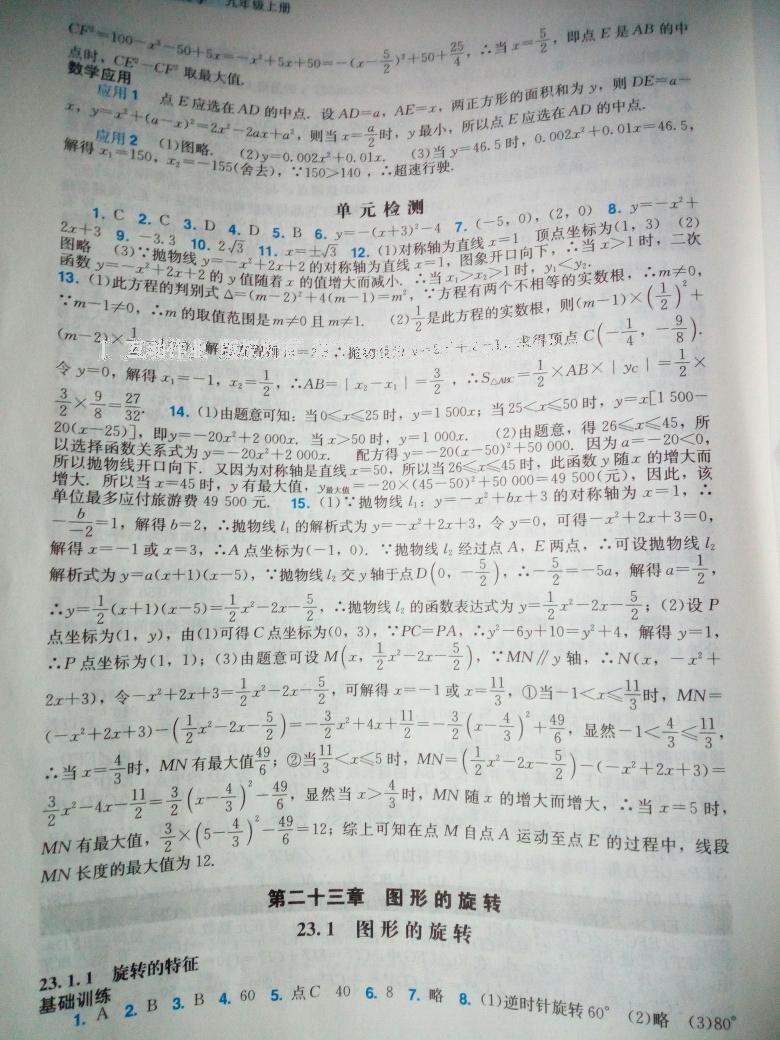 九年级上册
CF²=100-x²-50+5x=-x²+5x+50=-(x-5/2)²+50+25/4，∴当x=5/2，即点E是AB的中
点时，CE²-CF²取最大值.
数学应用
应用1 点E应选在AD的中点. 设AD=a，AE=x，两正方形的面积和为y，则DE=a-
x，y=x²+(a-x)²=2x²-2ax+a²，则当x=a/2时，y最小，所以点E应选在AD的中点.
应用2 (1)图略. (2)y=0.002x²+0.01x. (3)当y=46.5时，0.002x²+0.01x=46.5，
解得x₁=150，x₂=-155(舍去)，∵150>140，∴超速行驶.
单元检测
1. C 2. C 3. D 4. D 5. B 6. y=-(x+3)²-4 7. (-5，0)，(2，0) 8. y=-x²+
2x+3 9. -3.3 10. 2√3 11. x=±√3 12. (1)对称轴为直线x=1 顶点坐标为(1，3) (2)
图略 (3)∵抛物线y=-x²+2x+2的对称轴为直线x=1，图象开口向下，∴当x>1时，二次
函数y=-x²+2x+2的y值随着x的值增大而减小. ∴当x₁>x₂>1时，y₁<y₂.
13. (1)此方程的判别式Δ=(m-2)²+4(m-1)=m²，∵方程有两个不相等的实数根，∴m≠0，
∵m-1≠0，∴m的取值范围是m≠0且m≠1. (2)1/2是此方程的实数根，则(m-1)×(1/2)²+
(m-2)×1/2 求得顶点C(-1/4，-9/8).
令y=0，解得x₁=-1，x₂=1/2，∴AB=|x₂-x₁|=3/2，∴S△ABC=1/2×AB×|yC|=1/2×
3/2×9/8=27/32. 14. (1)由题意可知：当0≤x≤25时，y=1 500x；当25<x≤50时，y=x[1 500-
20(x-25)]，即y=-20x²+2 000x. 当x>50时，y=1 000x. (2)由题意，得26≤x≤45，所
以选择函数关系式为y=-20x²+2 000x. 配方得y=-20(x-50)²+50 000. 因为a=-20<0，
所以抛物线开口向下. 又因为对称轴是直线x=50，所以当26≤x≤45时，此函数y随x的增大而
增大. 所以当x=45时，y有最大值，y最大值=-20×(45-50)²+50 000=49 500(元)，因此，该
单位最多应付旅游费49 500元. 15. (1)∵抛物线l₁：y=-x²+bx+3的对称轴为x=1，∴
-b/-2=1，解得b=2，∴抛物线l₁的解析式为y=-x²+2x+3，令y=0，可得-x²+2x+3=0，
解得x=-1或x=3，∴A点坐标为(-1，0). ∵抛物线l₂经过点A，E两点，∴可设抛物线l₂
解析式为y=a(x+1)(x-5)，∵抛物线l₂交y轴于点D(0，-5/2)，∴-5/2=-5a，解得a=1/2，
∴y=1/2(x+1)(x-5)=1/2x²-2x-5/2，∴抛物线l₂的函数表达式为y=1/2x²-2x-5/2；(2)设P
点坐标为(1，y)，由(1)可得C点坐标为(0，3)，∵PC=PA，∴y²-6y+10=y²+4，解得y=1，
∴P点坐标为(1，1)；(3)由题意可设M(x，1/2x²-2x-5/2)，∵MN∥y轴，∴N(x，-x²+
2x+3)，令-x²+2x+3=1/2x²-2x-5/2，可解得x=-1或x=11/3，①当-1<x≤11/3时，MN=
(-x²+2x+3)-(1/2x²-2x-5/2)=-3/2x²+4x+11/2=-3/2(x-4/3)²+49/6，显然-1<4/3≤11/3，
∴当x=4/3时，MN有最大值49/6；②当11/3<x≤5时，MN=(1/2x²-2x-5/2)-(-x²+2x+3)=
3/2x²-4x-11/2=3/2(x-4/3)²-49/6，显然当x>4/3时，MN随x的增大而增大，∴当x=5时，
MN有最大值，3/2×(5-4/3)²-49/6=12；综上可知在点M自点A运动至点E的过程中，线段
MN长度的最大值为12.
第二十三章 图形的旋转
23.1 图形的旋转
23.1.1 旋转的特征
基础训练
1. A 2. B 3. B 4. 60 5. 点C 40 6. 8 7. 略 8. (1)逆时针旋转60° (2)略 (3)80°